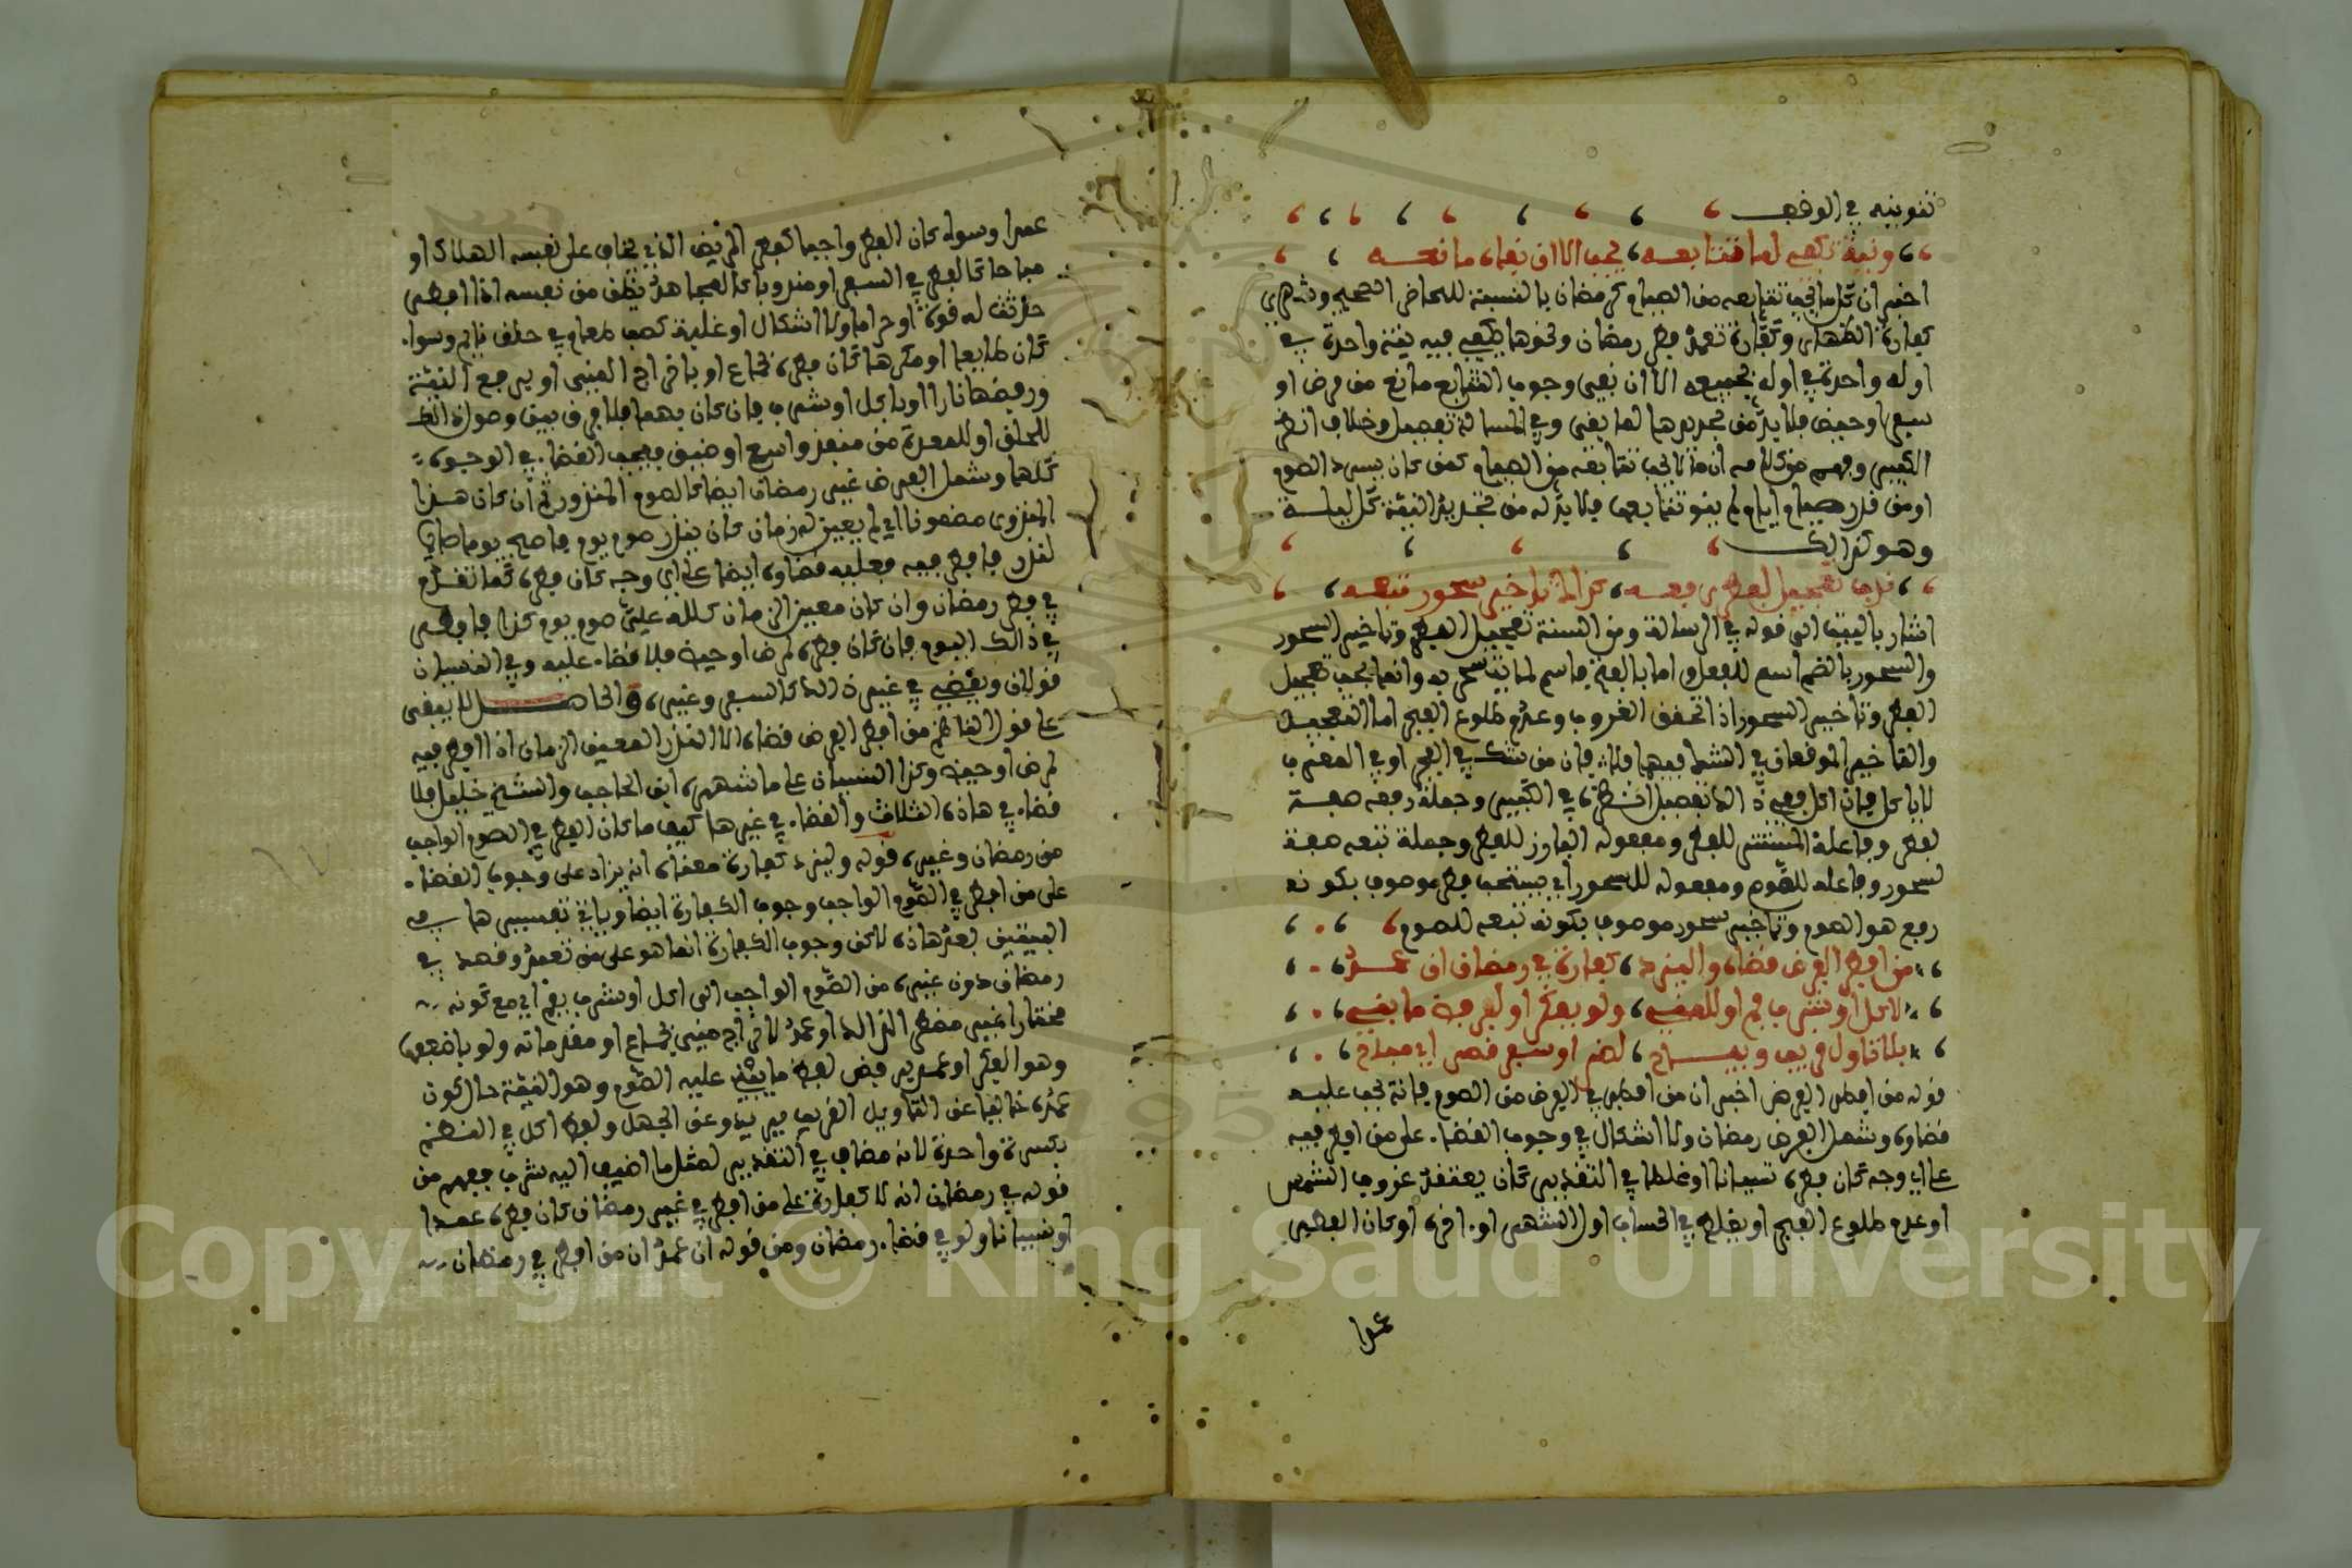 تنوينه في الوقف
ونية تكفي لما تتابعه يجب الا ان نفاه مانعه
اخبر ان كل ما يجب تتابعه من الصيام كرمضان بالنسبة للحاضر الصحيح وشهري
كفارة الظهار وكفارة تعمد فطر رمضان ونحوها يكفي فيه نية واحدة في
اوله واحدة في اوله لجميعه الا ان نفى وجوب التتابع مانع من مرض او
سفر او حيض فلا بد من تجديدها لما بقي وفي المسالة تفصيل وخلاف انظر
الكبير وفهم من كلامه ان ما لا يجب تتابعه من الصيام كمن كان يسرد الصوم
او من نذر صيام ايام لم ينو تتابعها فلا بد له من تجديد النية كل ليلة
وهو كذلك
ندب تعجيل لفطر رفعه كذاك تاخير سحور تبعه
اشار بالبيت الى قوله في الرسالة ومن السنة تعجيل الفطر وتاخير السحور
والسحور بالضم اسم للفعل واما بالفتح فاسم لما يتسحر به وانما يجب تعجيل
الفطر وتاخير السحور اذا تحقق الغروب وعدم طلوع الفجر اما التعجيل
والتاخير الموقعان في الشك فيهما فلا فان من شك في الفجر او في المغرب
لا ياكل فان اكل ففي ذلك تفصيل انظره في الكبير وجملة رفعه صفة
لفطر وفاعله المستتر للفطر ومفعوله البارز للفطر وجملة تبعه صفة
لسحور وفاعله للصوم ومفعوله للسحور اي يستحب فطر موصوف بكونه
رفع هو الصوم وتاخير سحور موصوف بكونه تبعه للصوم
من افطر الفرض قضاه وليزد كفارة في رمضان ان عمد
لاكل او شرب فم او للمني ولو بفكر او لرفض ما بني
بلا تاول قريب ويباح لضر او سفر قصر اي مباح
قوله من افطر الفرض اخبر ان من افطر في الفرض من الصوم فانه يجب عليه
قضاوه وشمل الفرض رمضان ولا اشكال في وجوب القضاء على من افطر فيه
على اي وجه كان فطره نسيانا او غلطا في التقدير كان يعتقد غروب الشمس
او عدم طلوع الفجر او يغلط في الحساب اول الشهر او اخره او كان الفطر
عمدا
عمدا وسواء كان الفطر واجبا كفطر المريض الذي يخاف على نفسه الهلاك او
مباحا كالفطر في السفر او مندوبا كالمجاهد يظن من نفسه اذا افطر
حدثت له قوة او حراما ولا اشكال او غلبة كصب طعام في حلق نائم وسواء
كان طايعا او مكرها كان فطره بجماع او باخراج المني او برفع النية
ورفضها نهارا او باكل او شرب فان كان بهما فلا فرق بين وصول
للحلق او للمعدة من منفذ واسع او ضيق فيجب القضاء في الوجوه
كلها وشمل الفرض غير رمضان ايضا كالصوم المنذور ثم ان كان هذا
المنذور مضمونا اي لم يعين له زمان كان ينذر صوم يوم فاصبح يوما
لنذره فافطر فيه فعليه قضاوه ايضا على اي وجه كان فطره كما تقدم
في فطر رمضان وان كان معين الزمان كلله علي صوم يوم كذا فافطر
في ذالك اليوم فان كان فطره لمرض او حيض فلا قضاء عليه وفي النسيان
قولان ويقضي في غير ذالك كالسفر وغيره والحاصل
على قول الناظم من افطر الفرض قضاه الا النذر المعين الزمان اذا افطر فيه
لمرض او حيض وكذا النسيان على ما شهره ابن الحاجب والشيخ خليل فلا
قضاء في هاذه الثلاث والقضاء في غيرها كيف ما كان الفطر في الصوم الواجب
من رمضان وغيره قوله وليزد كفارة معناه انه يزاد على وجوب القضاء
على من افطر في الصوم الواجب وجوب الكفارة ايضا وياتي تفسيرها في
البيتين بعد هاذه لاكن وجوب الكفارة انما هو على من تعمد وقصد في
رمضان دون غيره من الصوم الواجب الى اكل او شرب بفم اي مع كونه
مختارا غير مضطر لذالك او عمد لاخراج مني بجماع او مقدماته ولو باضعفها
وهو الفكر او عمد برفض لـ ما بني عليه الصوم وهو النية حال كون
عمده خاليا عن التاويل القريب وعن الجهل ولفظ اكل في النظم
بكسرة واحدة لانه مضاف في التقدير لمثل ما اضيف اليه شرب ففهم من
قوله في رمضان انه لا كفارة على من افطر في غير رمضان كان فطره عمدا
او نسيانا ولو في قضاء رمضان ومن قوله ان عمد ان من افطر في رمضان
Copyright © King Saud University